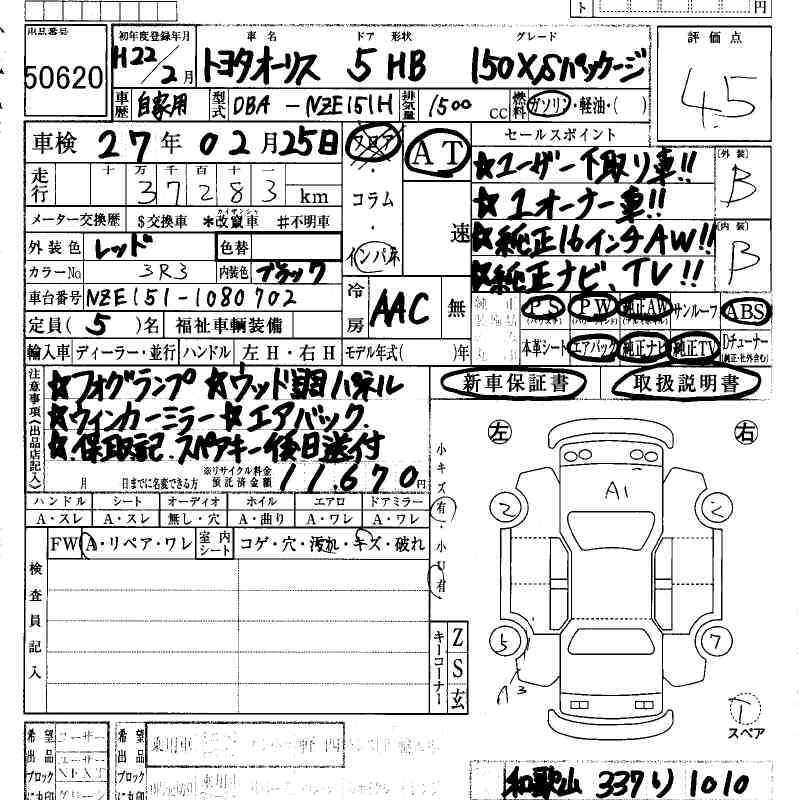 円
出品番号 50620
初年度登録年月 H22/2月
車名 トヨタオーリス
ドア 形状 5 HB
グレード 150X,Sパッケージ
評価点 4.5
車歴 自家用
型式 DBA-NZE151H
排気量 1500 CC
燃料 ガソリン・軽油・( )
車検 27年02月25日
フロア・コラム・インパネ
AT
速
セールスポイント
★ユーザー下取り車!!
★1オーナー車!!
★純正16インチAW!!
★純正ナビ、TV!!
外装 B
内装 B
走行 十万千百十一
37283 km
メーター交換歴 $交換車 *改竄車 #不明車
カイザンシャ
外装色 レッド 色替
カラーNo 3R3 内装色 ブラック
車台番号 NZE151-1080702
冷房 AAC 無
定員(5)名 福祉車輌装備
PS PW 純正AW サンルーフ ABS
本革シート エアバック 純正ナビ 純正TV Dチューナー
(純正・社外含む)
輸入車 ディーラー・並行 ハンドル 左H・右H モデル年式( )年
新車保証書 取扱説明書
注意事項(出品店記入)
★フォグランプ ★ウッド調パネル
★ウィンカーミラー★エアバック
★保取記.スペアキー後日送付
月 日までに名変できる方
※リサイクル料金預託済金額 11,670円
ハンドル シート オーディオ ホイル エアロ ドアミラー
A・スレ A・スレ 無し・穴 A・曲り A・ワレ A・ワレ
FW A・リペア・ワレ 室内シート コゲ・穴・汚れ・キズ・破れ
小キズ有・小U有
検査員記入
キーコーナー
Z
S
玄
左 右
A1
2 2
5 7
A3
T
スペア
希望出品ブロックに丸印
ユーザー
ユーザーNEXT
希望出品ブロックに丸印
乗用車
和歌山 337り1010